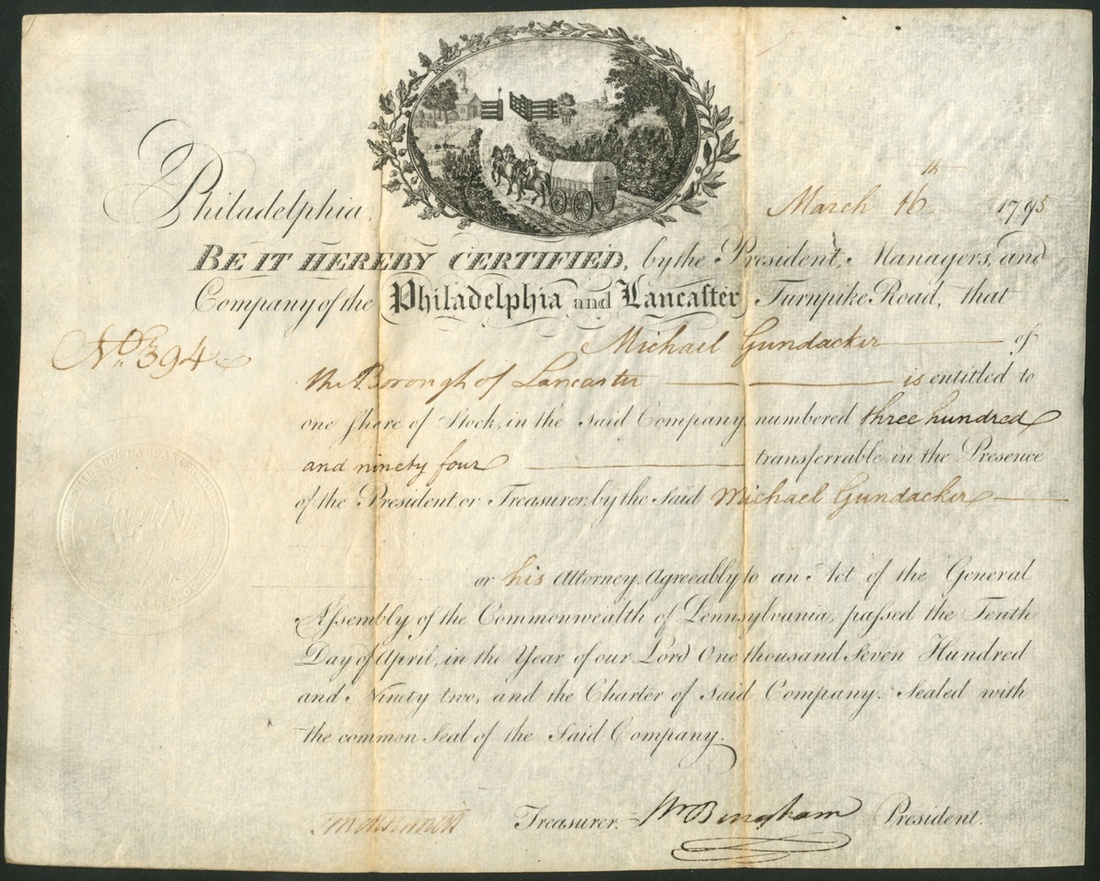 Philadelphia, March 16th 1795
BE IT HEREBY CERTIFIED, by the President, Managers, and
Company of the Philadelphia and Lancaster Turnpike Road, that
No. 394
Michael Gundacker of
the Borough of Lancaster is entitled to
one Share of Stock, in the Said Company, numbered three hundred
and ninety four transferrable in the Presence
of the President or Treasurer, by the Said Michael Gundacker
or his Attorney. Agreeably to an Act of the General
Assembly of the Commonwealth of Pennsylvania, passed the Tenth
Day of April, in the Year of our Lord One thousand Seven Hundred
and Ninety two, and the Charter of Said Company. Sealed with
the common Seal of the Said Company.
Treasurer. Wm Bingham President.